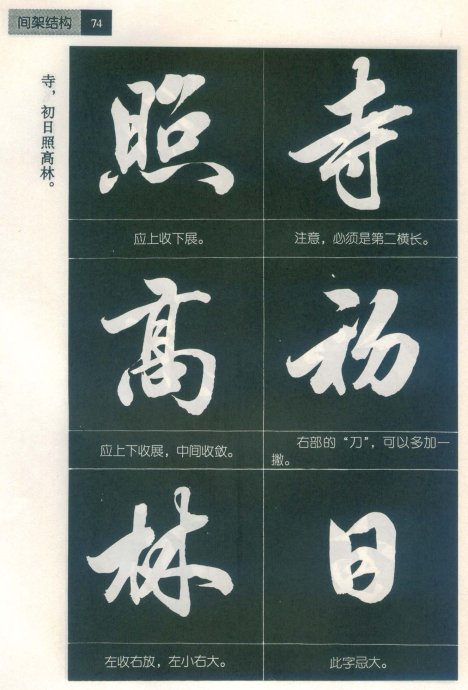 间架结构 74
寺，初日照高林。
寺
注意，必须是第二横长。
初
右部的“刀”，可以多加一
撇。
日
此字忌大。
照
应上收下展。
高
应上下收展，中间收敛。
林
左收右放，左小右大。